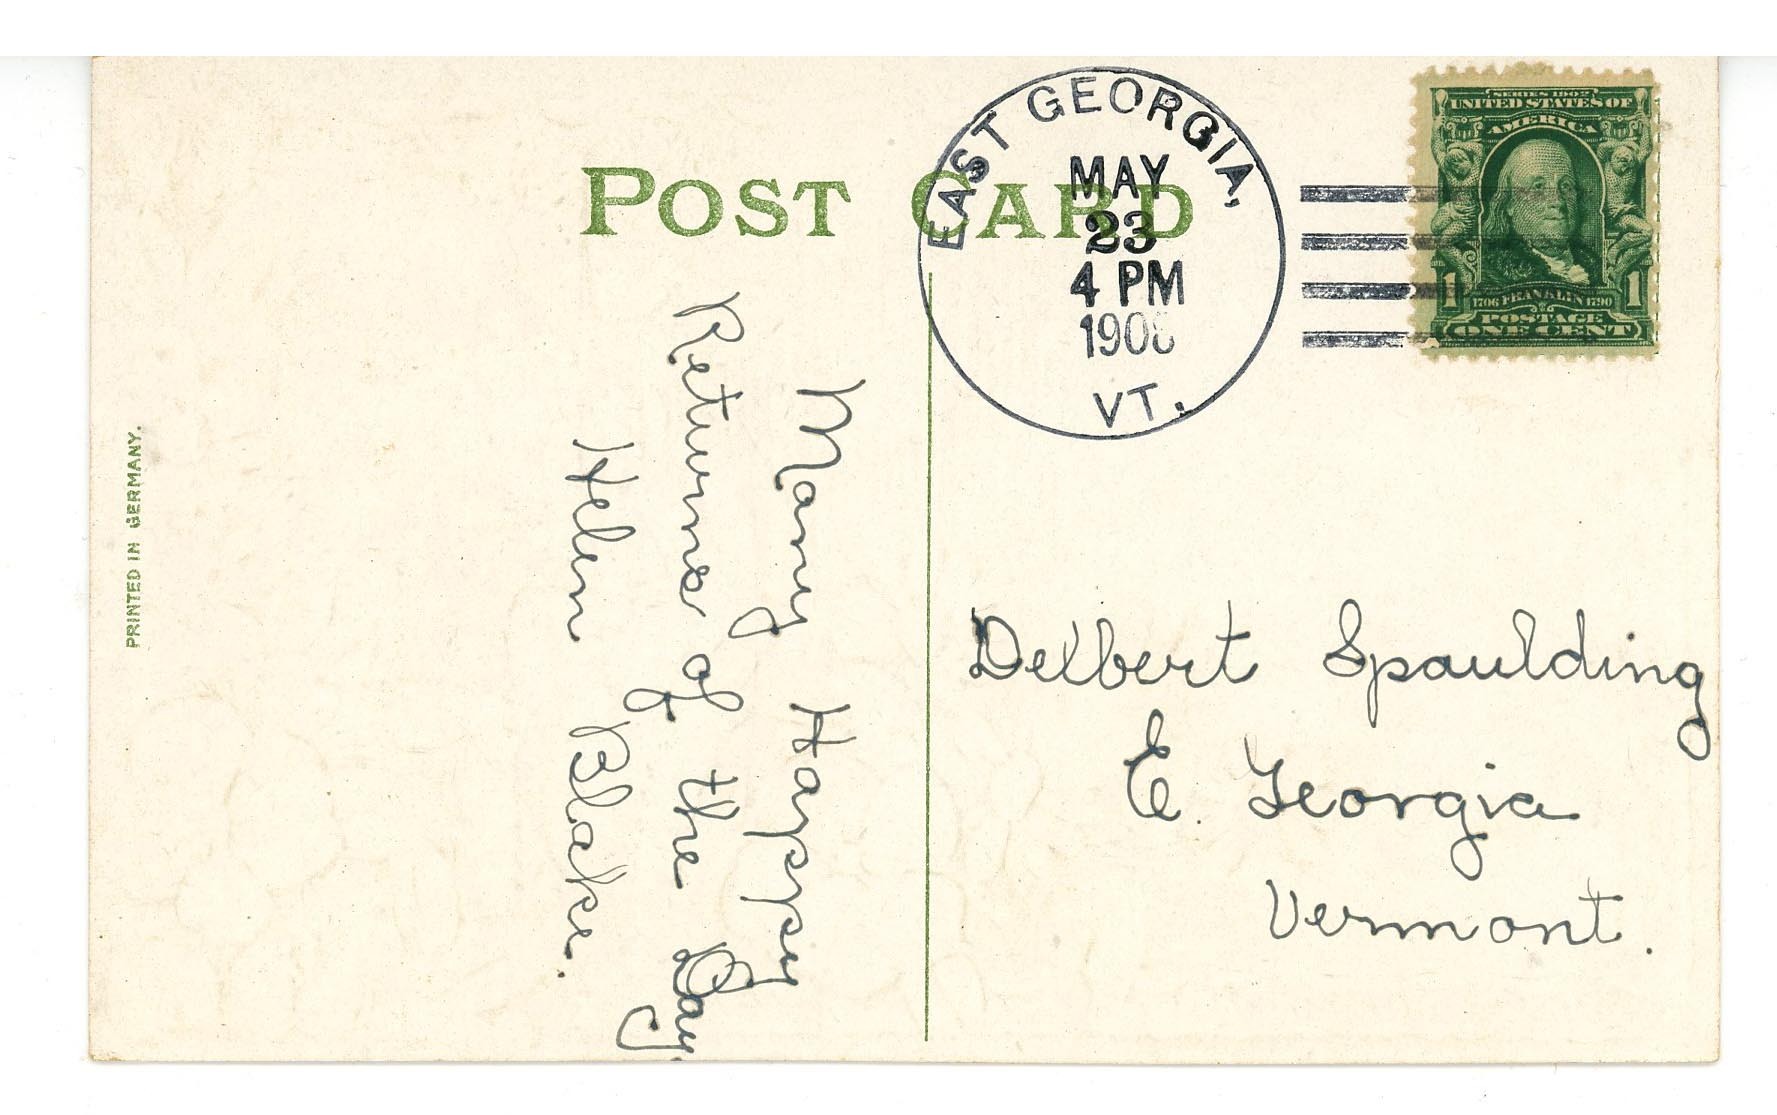 POST CARD
EAST GEORGIA,
MAY
23
4 PM
1908
VT.
SERIES 1902
UNITED STATES OF
AMERICA
1 1706 FRANKLIN 1790 1
POSTAGE
ONE CENT
PRINTED IN GERMANY.
Many Happy
Returns of the Day
Helen Blake.
Delbert Spaulding
E. Georgia
Vermont.